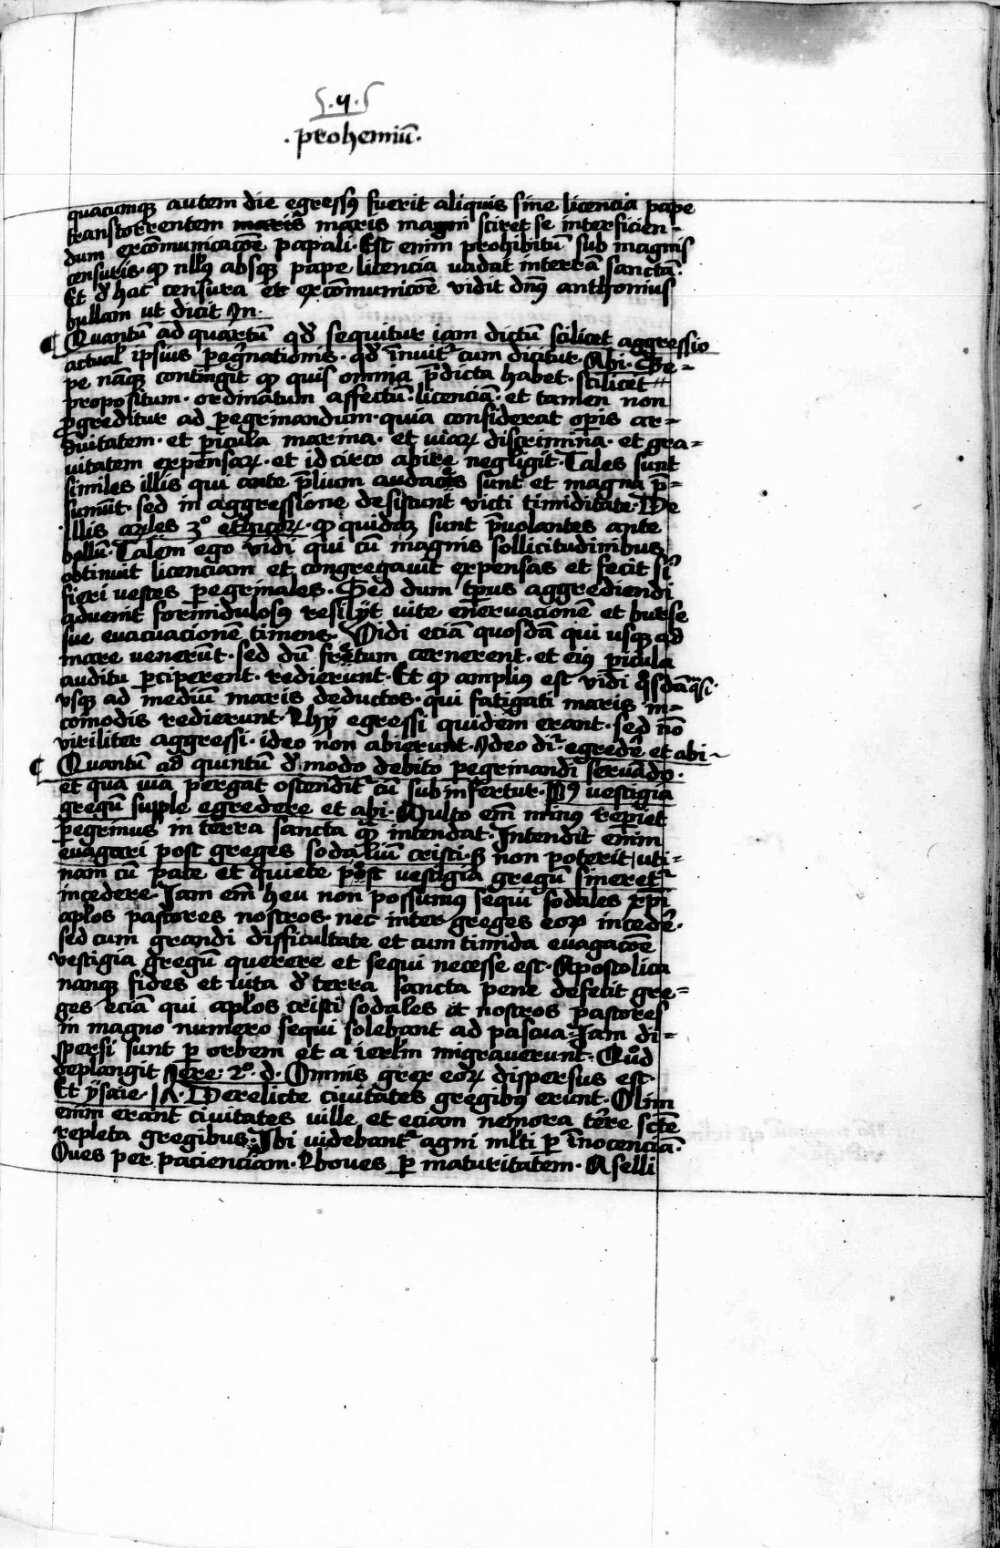 .4.
.prohemiū.
quacumqꝫ autem die egressꝰ fuerit aliquis sine licencia pape
transtorrentem maris maris magni sciret se interficien-
dum excōmunicacōe papali. Est enim prohibitū sub magnis
censuris. ꝙ nllꝰ absqꝫ pape licencia vadat interrā sanctā.
Et đ hac censura et excōmunicōe vidit dnꝰ anthonius
bullam ut dicit
Quantū ad quartū qđ sequitur iam dictū scilicet aggressio
actual ipsius ꝑegrinationis. qđ īnuit cum dicitur. Abi. Se-
pe nāqꝫ contingit ꝙ quis omnia p̄dicta habet. scilicet
propositum. ordinatum affectū. licenciā. et tamen non
ꝓgreditur ad ꝑegrinandum. quia considerat oꝑis ar-
duitatem. et ꝑicula marina. et viarꝝ discrimina. et gra-
uitatem expensarꝝ. et id circo abire negligit. Tales sunt
similes illis qui ante p̄lium audaces sunt et magna p̄-
sumūt. sed in aggressione desistunt victi timiditate. De
illis ar̄les 3º ethicorꝝ. ꝙ quidaꝫ sunt p̄uolantes ante
bellū. Talem ego vidi qui cū magnis sollicitudinibus
obtinuit licenciam et congregauit expensas et fecit si
fieri vestes ꝑegrinales. Sed dum tp̄us aggrediendi
aduenit formidulosꝰ resilijt vite eneruacionē et burse
sue euacuacionē timens. Vidi eciā quosdā qui usqꝫ ad
mare venerūt. sed dū fretum cernerent. et eiꝰ ꝑicula
auditu ꝑciperent. redierunt. Et ꝙ amplius est vidi qsdā
vsqꝫ ad mediū maris deductos. qui fatigati maris in-
comodis redierunt. Hij egressi quidem erant. sed nō
viriliter aggressi. ideo non abierunt. Ideo dr̄. egredē et abi
Quantū ad quintū đ modo debito ꝑegrinandi seruādo.
et qua via pergat ostendit cū subinfertur. Post vestigia
gregū supple egredere et abi. Multo em̄ minus repiet
ꝑegrinus in terra sancta ꝙ intendat. Intendit enim
euagari post greges sodaliū cristi. sꝫ non poterit, uti-
nam cū pace et quiete post vestigia gregū sineret
incedere. Iam em̄ heu non possumus sequi sodales xp̄i
aplos pastores nostros. nec inter greges eorꝝ incedē.
sed cum grandi difficultate et cum timida euagacōe
vestigia gregū querere et sequi necesse est. Apostolica
nanqꝫ fides et vita đ terra sancta pene defecit gre-
ges eciā qui aplos cristi sodales et nostros pastores
in magno numero sequi solebant ad pascua. Iam di-
spersi sunt ꝑ orbem et a ierlm̄ migrauerunt. Quod
deplangit Jere. 2º. d. Omnis grex eorꝝ dispersus est.
Et ysaie. 17. Derelicte ciuitates gregibꝰ erunt. Olim
enim erant ciuitates ville et eciam nemora terre scte
repleta gregibus. Ibi videbant agni mlti ꝑ īnocenciā.
Oues per pacienciam. boues ꝑ maturitatem. Aselli